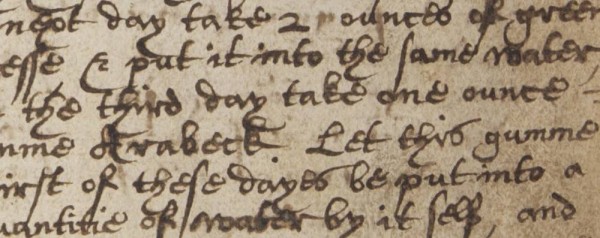 next day take 2 ounces of green
esse & put it into the same water,
the third day take one ounce
mme Arabeck Let this gumme
irst of these dayes be put into a
uantitie of water by it self, and